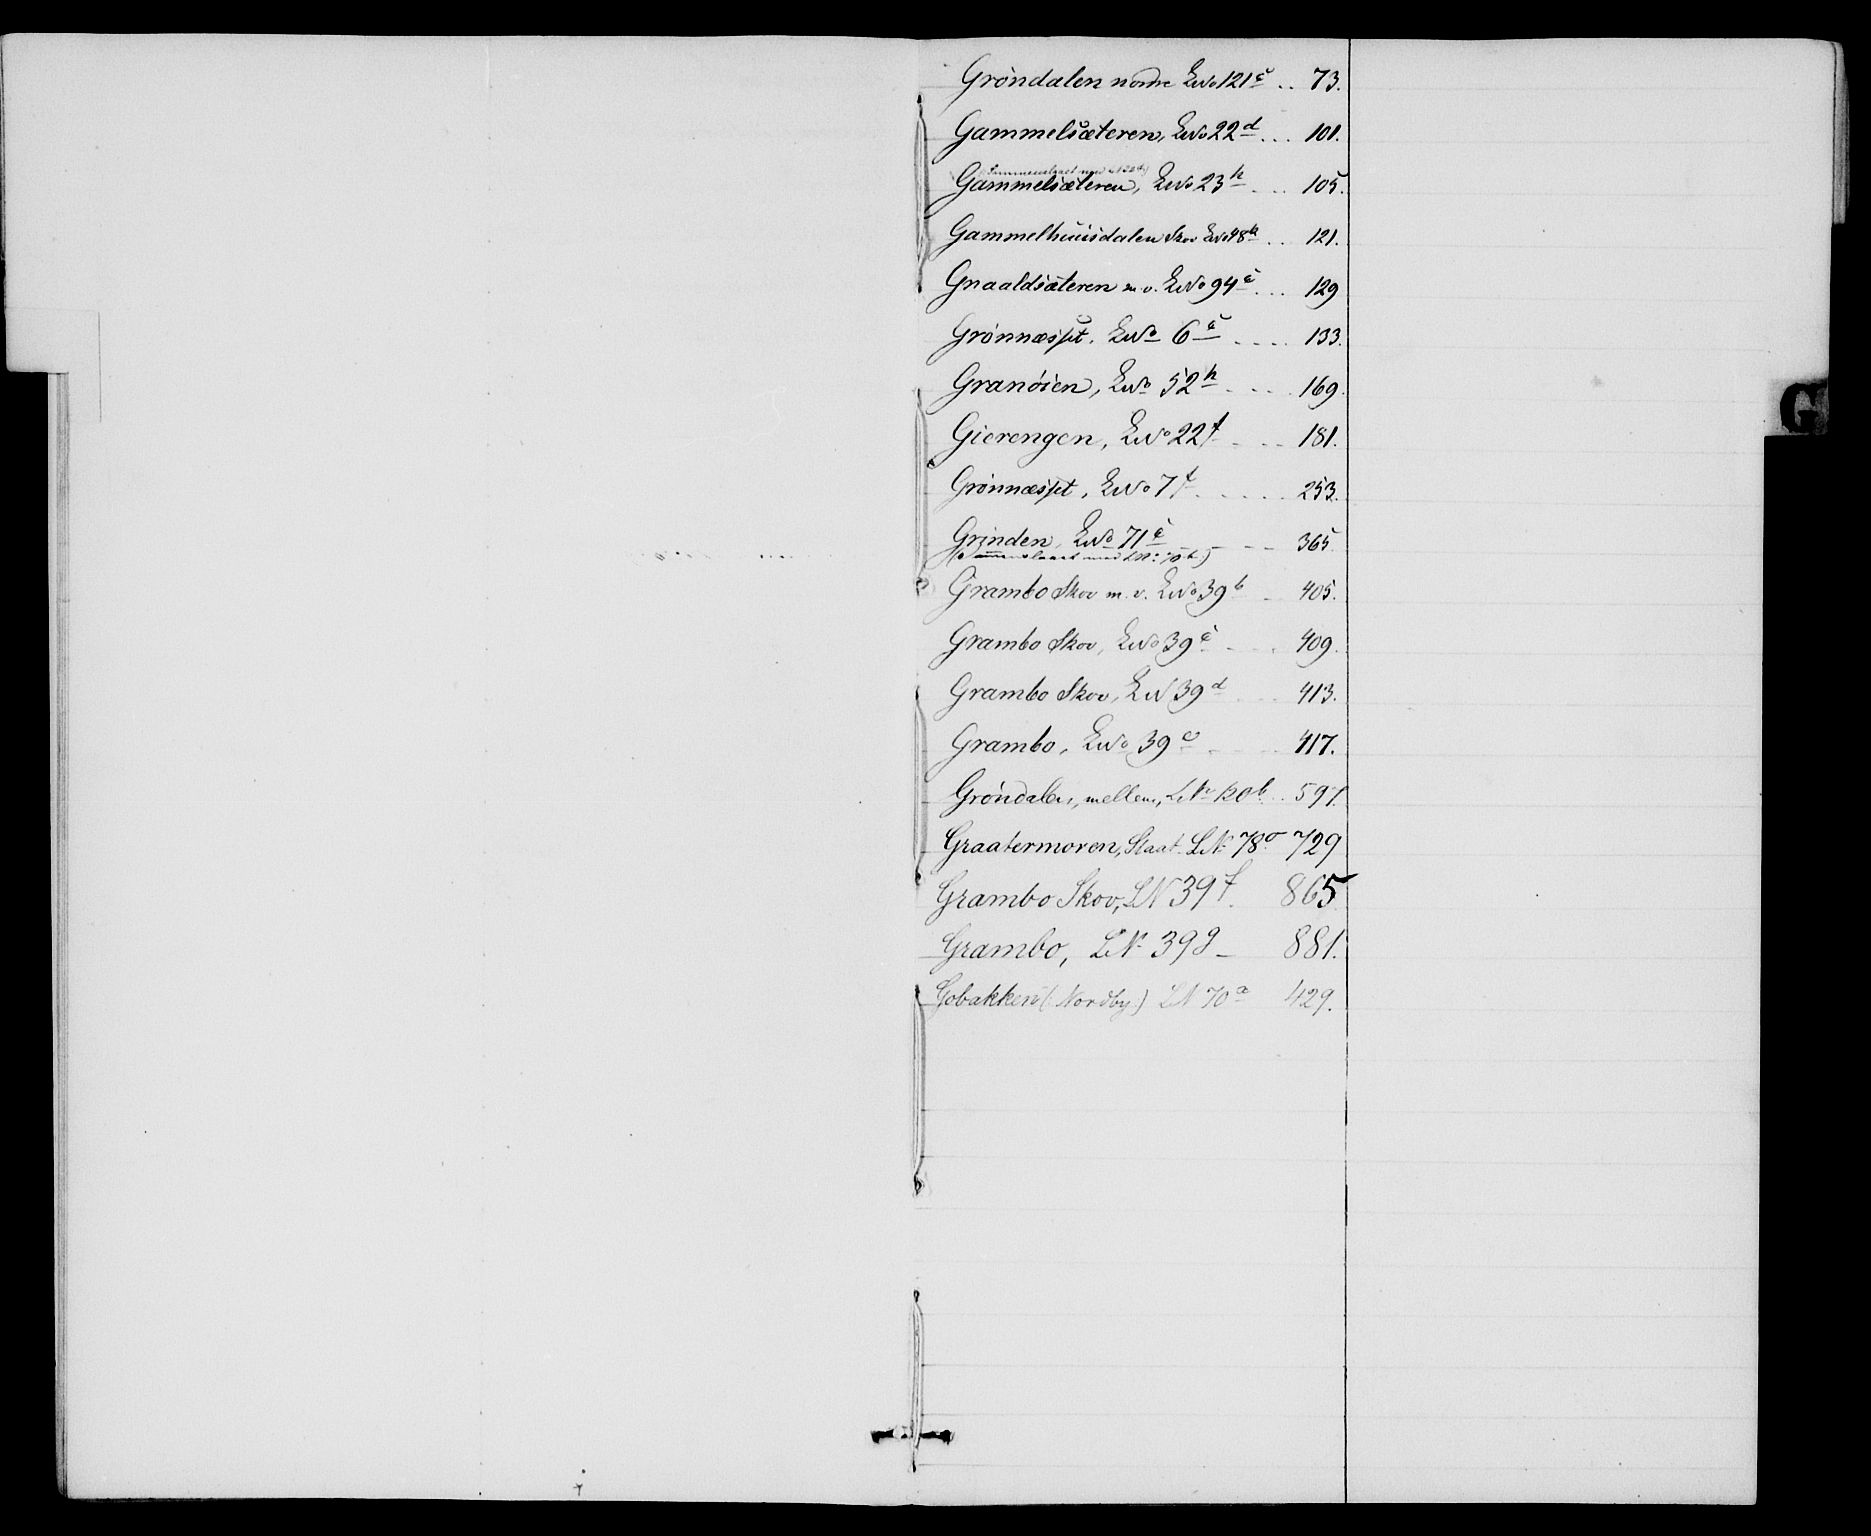 Gröndalen nordre LNo 121c .. 73.
Gammelsæteren, LNo 22d ... 101.
(Sammenslaaet med
Gammelsæteren, LNo 23h ... 105.
Gammelhuusdalen Skov LNo 48k .. 121.
Gnaaldsæteren m.v. LNo 94c ... 129
Grönnæsset. LNo 6c .... 133.
Granöien, LNo 52h .... 169.
Gierengen, LNo 22f .... 181.
Grönnæsset, LNo 7f ..... 253.
Grinden, LNo 71c .... 365.
(Sammenslaaet med LN: 70b)
Grambo Skov m.v. LNo 39b .. 405.
Grambo Skov, LNo 39c ... 409.
Grambo Skov, LN 39d ... 413.
Grambo, LNo 39e .... 417.
Gröndalen, mellem, LNo 120b .. 597.
Graatermoren, Slaat. LN 78o 729
Grambo Skov, LN 39f. 865
Grambo, LN 39g 881.
Gobakken (Nordby) LN 70a 429.
G